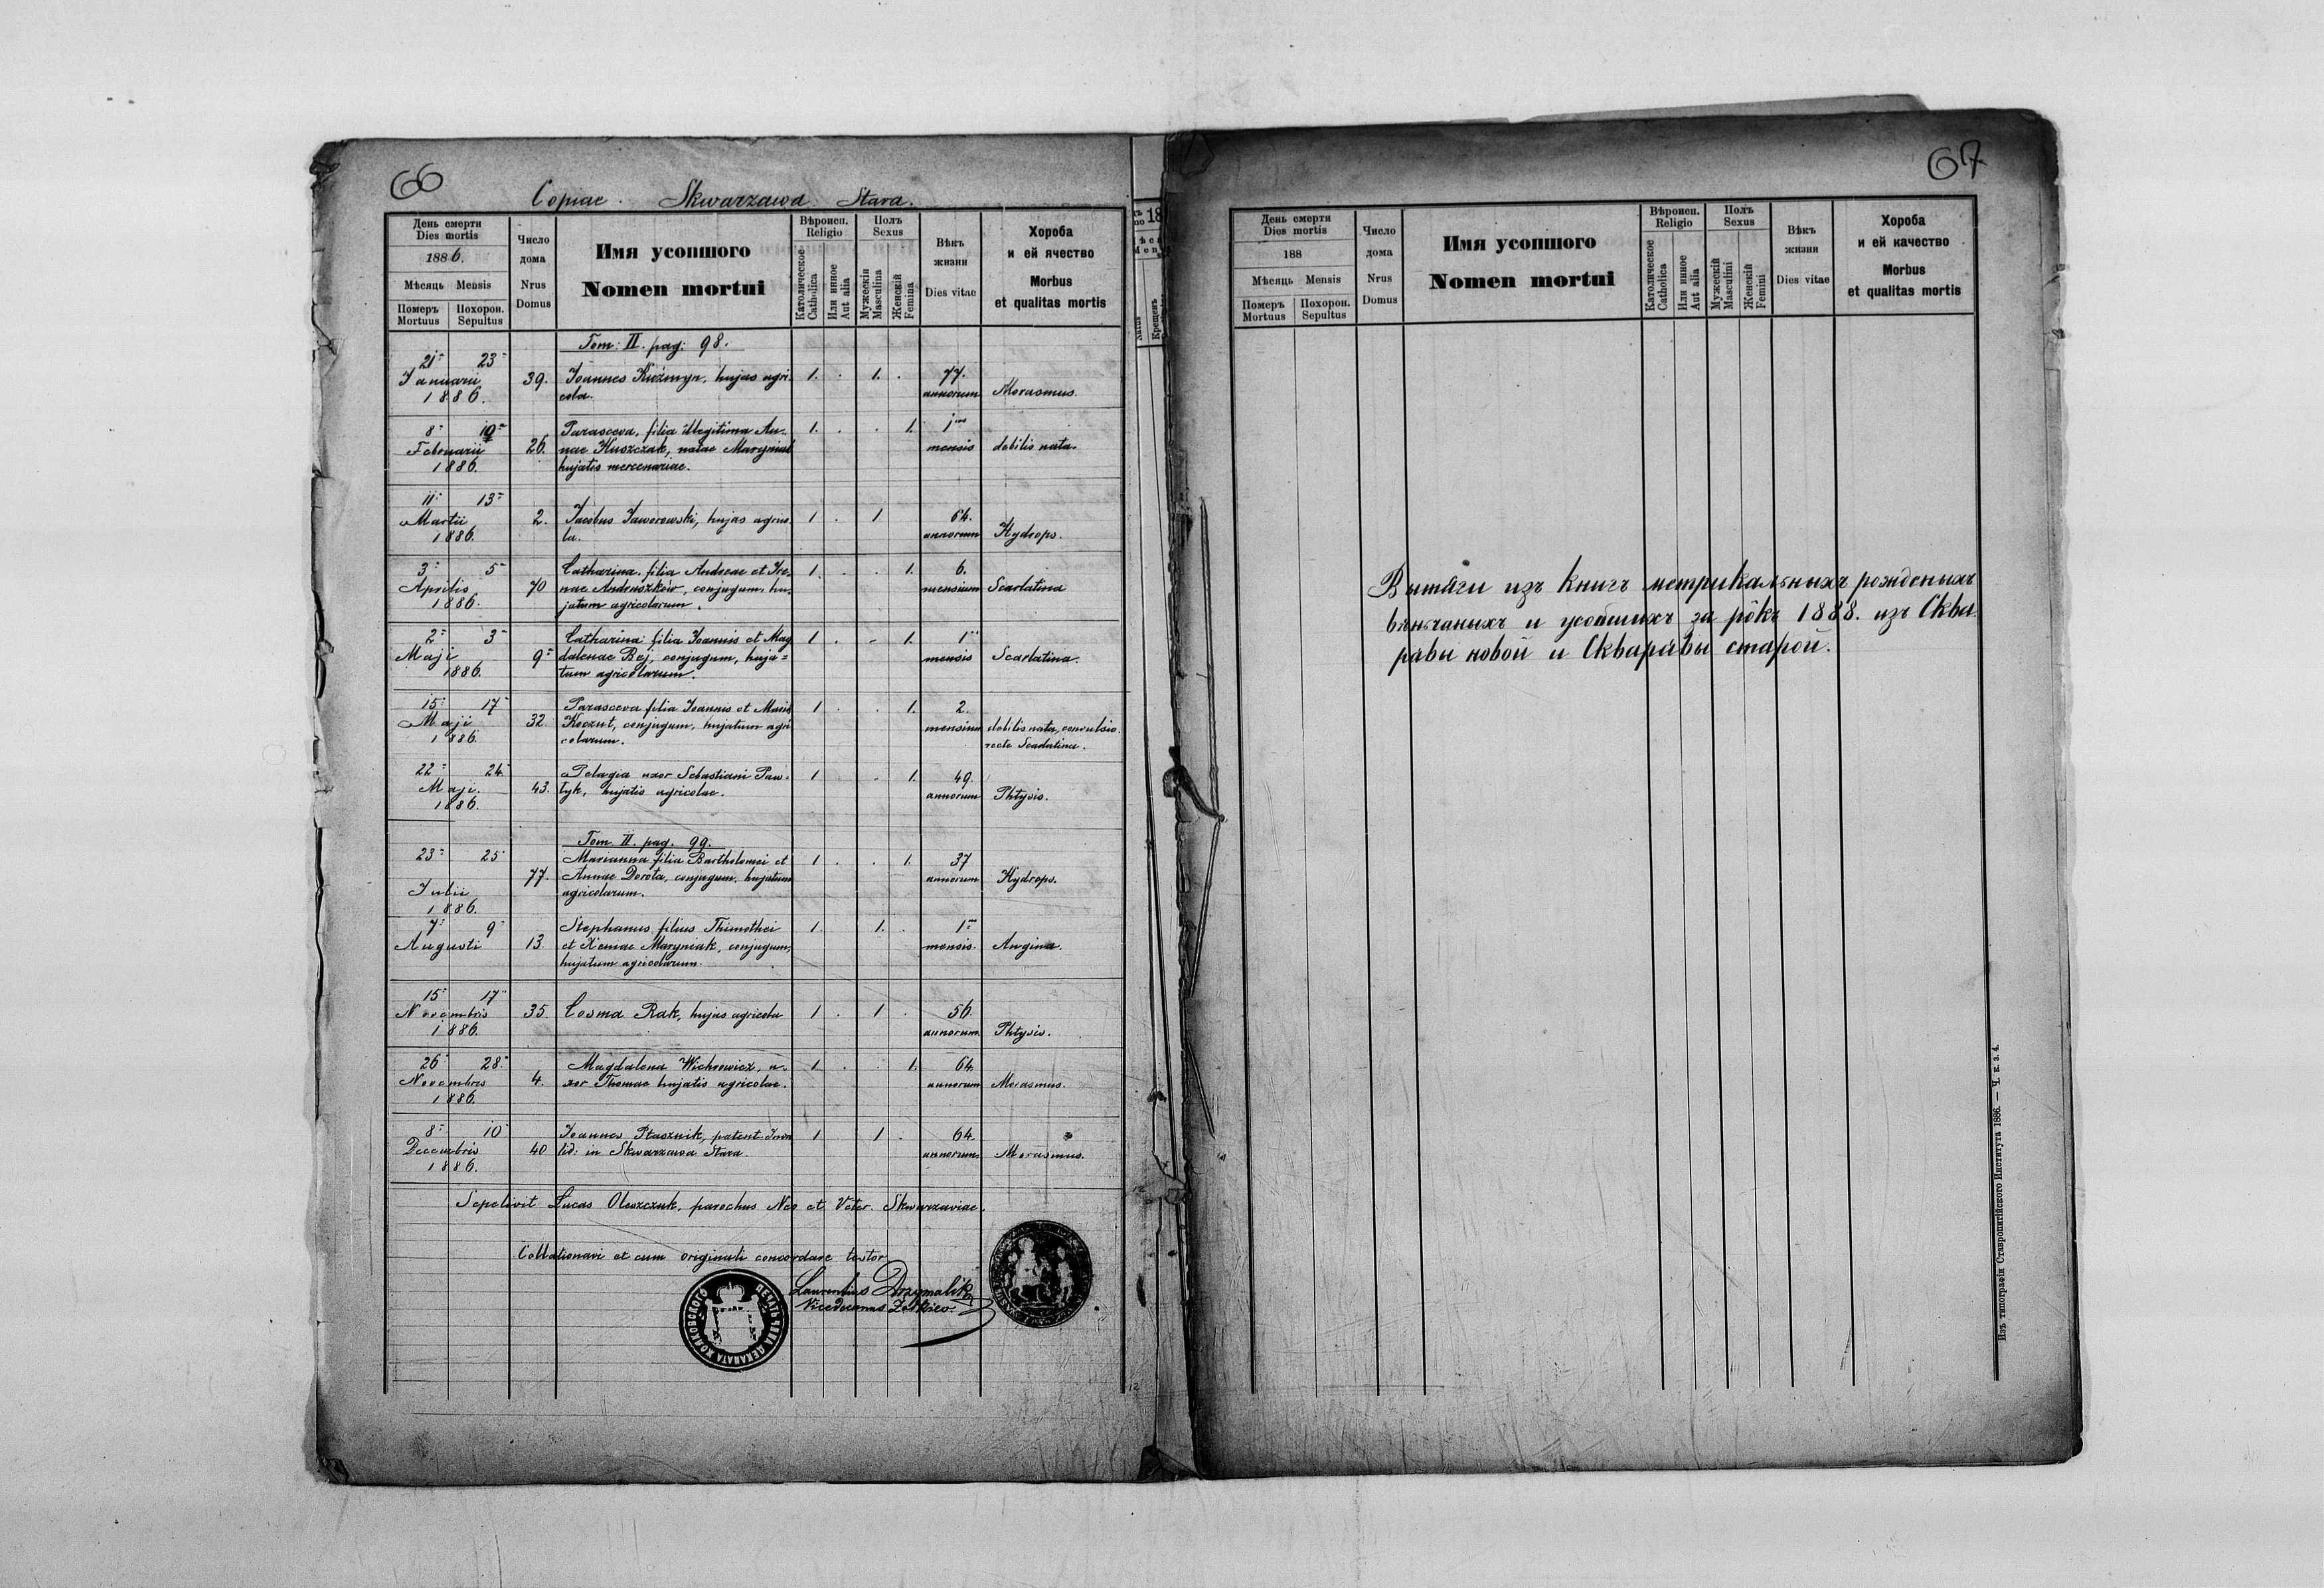 66
Copiae. Skwarzawa Stara.
День смерти
Dies mortis
1886.
Мѣсяць Mensis
Померъ Mortuus
Похорон. Sepultus
Число дома
Nrus Domus
Имя усопшого
Nomen mortui
Вѣроисп.
Religio
Католическое Catholica
Или инное Aut alia
Полъ
Sexus
Мужескій Masculina
Женскій Femina
Вѣкъ жизни
Dies vitae
Хороба
и ей ячество
Morbus
et qualitas mortis
Tom: II. pag: 98.
21 23
Januarii 39. Joannes Kuźmyn, hujas agri- 1. . 1. . 77.
1886. cola. annorum Morasmus.
8 10 Parasceva, filia illegitima An- 1. . . 1. 1
Februarii 26. nae Huszczak, natae Maryniak mensis debilis nata.
1886. hujatis mercenariae.
11 13
Martii 2. Jacobus Jaworowski, hujas agrico- 1 . 1 64.
1886. la. annorum Hydrops.
3 5 Catharina filia Andreae et Ire- 1. . . 1. 6.
Aprilis 70 nae Andruszków, conjugum, hu- mensium Scarlatina
1886. jatum agricolarum.
2 3 Catharina filia Joannis et Mag 1 . . 1. 1
Maji 9 dalenae Bej, conjugum, huja= mensis Scarlatina.
1886. tum agricolarum.
15 17 Parasceva filia Joannis et Mariae 1 . . 1. 2.
Maji 32. Koczut, conjugum, hujatum agri mensium debilis nata, convulsio.
1886. colarum. recte Scarlatina.
22 24 Pelagia uxor Sebastiani Paw- 1 . . 1. 49.
Maji. 43. lyk, hujatis agricolae. annorum Phtysis.
1886.
Tom. II. pag. 99.
23 25 Marianna filia Bartholomei et 1 . . 1. 37
77. Annae Dorota, conjugum, hujatum annorum Hydrops.
Julii agricolarum.
1886.
7 9 Stephanus filius Thimothei 1. 1. . 1
Augusti 13. et Xeniae Maryniak, conjugum, mensis. Angina.
hujatum agricolarum.
15 17
Novembris 35. Cosma Rak, hujas agricola 1 . 1 . 56.
1886. annorum Phtysis.
26 28 Magdalena Wichrowicz, u- 1. . . 1. 64.
Novembris 4. xor Thomae hujatis agricolae. annorum Morasmus.
1886.
8 10 Joannes Ptasznik, patent. Inva 1 1 . 64.
Decembris 40 lid: in Skwarzawa Stara annorum Morasmus.
1886.
Sepelivit Lucas Oleszczuk, parochus Neo et Veter. Skwarzaviae.
Collationavi et cum originali concordare testor
Laurentius Drzymalik
Vicedecanus Żółkiev.
67
День смерти
Dies mortis
188
Мѣсяць Mensis
Померъ Mortuus
Похорон. Sepultus
Число дома
Nrus Domus
Имя усопшого
Nomen mortui
Вѣроисп.
Religio
Католическое Catholica
Или инное Aut alia
Полъ
Sexus
Мужескій Masculini
Женскій Femini
Вѣкъ жизни
Dies vitae
Хороба
и ей качество
Morbus
et qualitas mortis
Вытяги изъ книгъ метрикальныхъ рожденыхъ
вѣнчаныхъ и усопшихъ за рôкъ 1888. изъ Сква-
рявы новой и Скварявы старой.
Изъ типографіи Ставропигійского Института 1886. — Ч. к. з. 4.